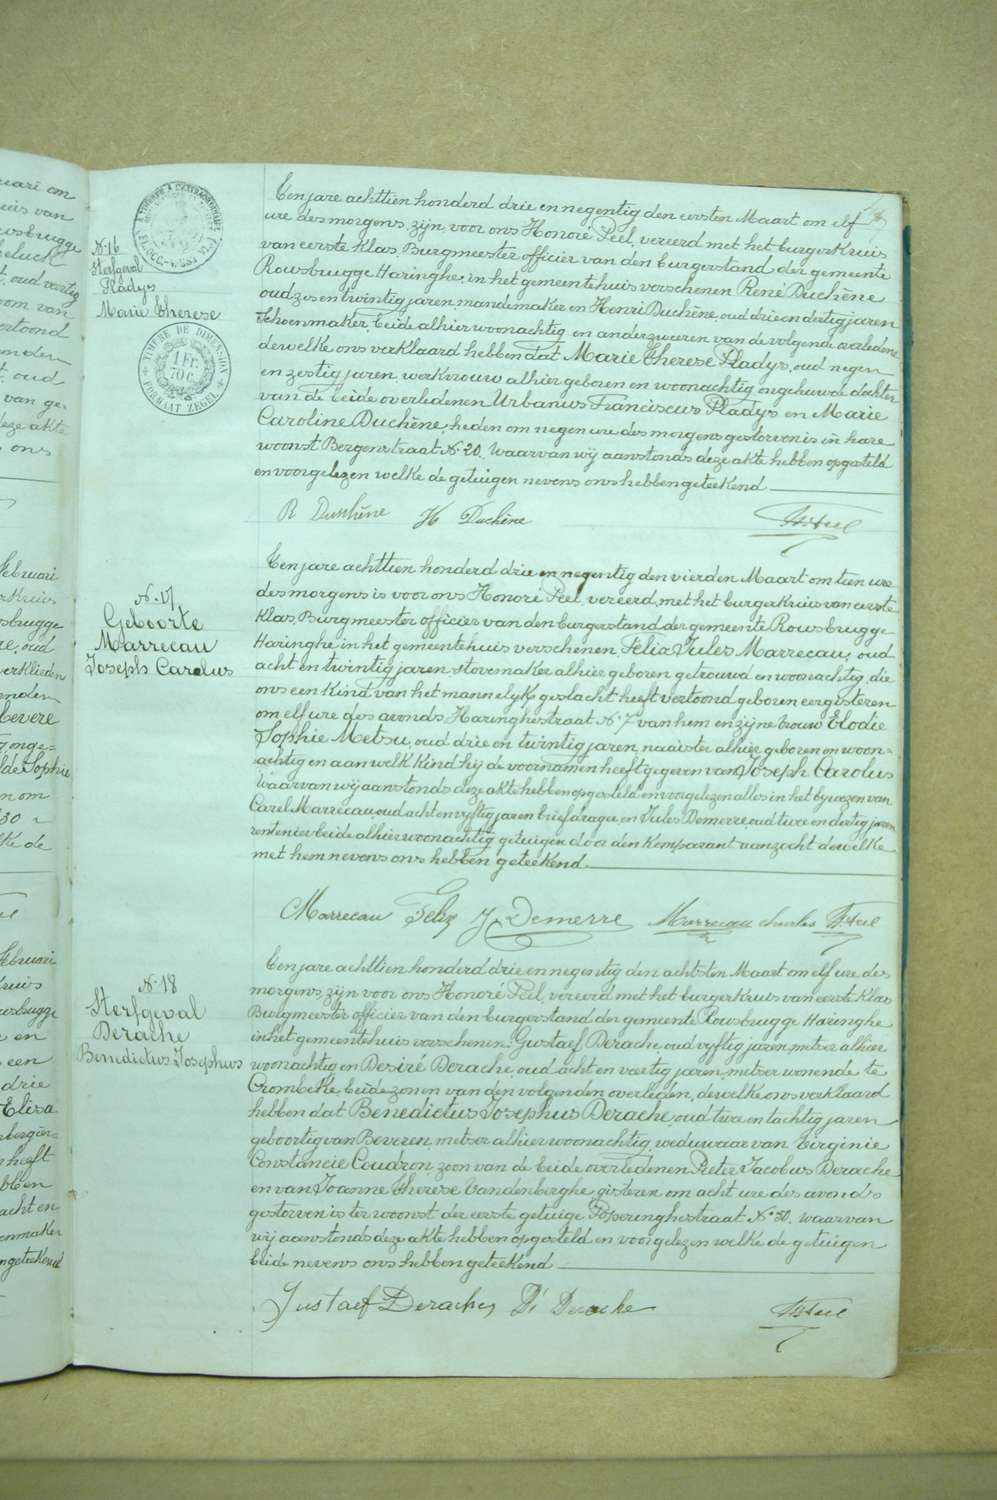 N. 16
Sterfgeval
Pladys
Marie Therese
TIMBRE DE DIMENSION
1 FR.
70 C.
FORMAAT ZEGEL
Tenjare achttien honderd drie en negentig den eersten Maart om elf
ure des morgens, zijn voor ons Honoré Peel, vereerd met het burgerKruis
van eerste Klas, Burgmeester officier van den burgerstand der gemeente
Rousbrugge Haringhe, in het gemeentehuis verschenen René Duchêne
oud zes en twintig jaren, mandemaker en Henri Duchêne, oud drie en dertig jaren
schoenmaker, beide alhier woonachtig en anderzweeren van de volgende overledene
dewelke ons verklaard hebben dat Marie Therese Pladys, oud negen
en zestig jaren, werkvrouw alhier geboren en woonachtig, ongehuwde dochter
van de beide overledenen Urbanus Franciscus Pladys en Marie
Caroline Duchêne, heden om negen ure des morgens gestorven is in hare
woonst Bergenstraat N. 20. Waarvan wij aanstonds deze akte hebben opgesteld
en voorgelezen welke de getuigen nevens ons hebben geteekend
R Duchêne H Duchêne H. Peel
N. 17
Geboorte
Marrecau
Joseph Carolus
Tenjare achttien honderd drie en negentig den vierden Maart om tien ure
des morgens is voor ons Honoré Peel, vereerd met het burgerKruis van eerste
Klas, Burgmeester officier van den burgerstand der gemeente Rousbrugge
Haringhe in het gemeentehuis verschenen, Felix Jules Marrecau, oud
acht en twintig jaren, stovemaker alhier geboren getrouwd en woonachtig, die
ons een Kind van het mannelyk geslacht heeft vertoond geboren eergisteren
om elf ure des avonds, Haringhestraat N. 7 van hem en zijne vrouw Elodie
Sophie Metsu, oud drie en twintig jaren, naaister alhier geboren en woon-
achtig en aan welk Kind hij de voornamen heeft gegeven van Joseph Carolus
Waarvan wij aanstonds deze akte hebben opgesteld en voorgelezen alles in het bywezen van
Carel Marrecau, oud acht en vyftig jaren briefdrager en Jules Demerre, oud twee en dertig jaren
rentenier beide alhier woonachtig getuigen door den Komparant aanzocht dewelke
met hem nevens ons hebben geteekend
Marrecau Felix J. Demerre Marrecau Charles H. Peel
N. 18
Sterfgeval
Derache
Benedictus Josephus
Tenjare achttien honderd drie en negentig den achtsten Maart om elf ure des
morgens zijn voor ons Honoré Peel, vereerd met het burgerKruis van eerste Klas
Burgmeester officier van den burgerstand der gemeente Rousbrugge Haringhe
in het gemeentehuis verschenen Gustaef Derache, oud vyftig jaren, metser alhier
woonachtig en Desiré Derache, oud acht en veertig jaren, metser wonende te
Crombeke, beide zonen van den volgenden overleden, dewelke ons verklaard
hebben dat Benedictus Josephus Derache, oud twee en tachtig jaren
geboortig van Beveren, metser alhier woonachtig, weduwaar van Virginie
Constancie Coudron, zoon van de beide overledenen Pieter Jacobus Derache
en van Joanne Therese Vandenberghe, gisteren om acht ure des avonds
gestorven is ter woonst der eerste getuige Poperinghestraat N. 30. waarvan
wij aanstonds deze akte hebben opgesteld en voorgelezen welke de getuigen
beide nevens ons hebben geteekend
Gustaef Derache Dé Derache H. Peel